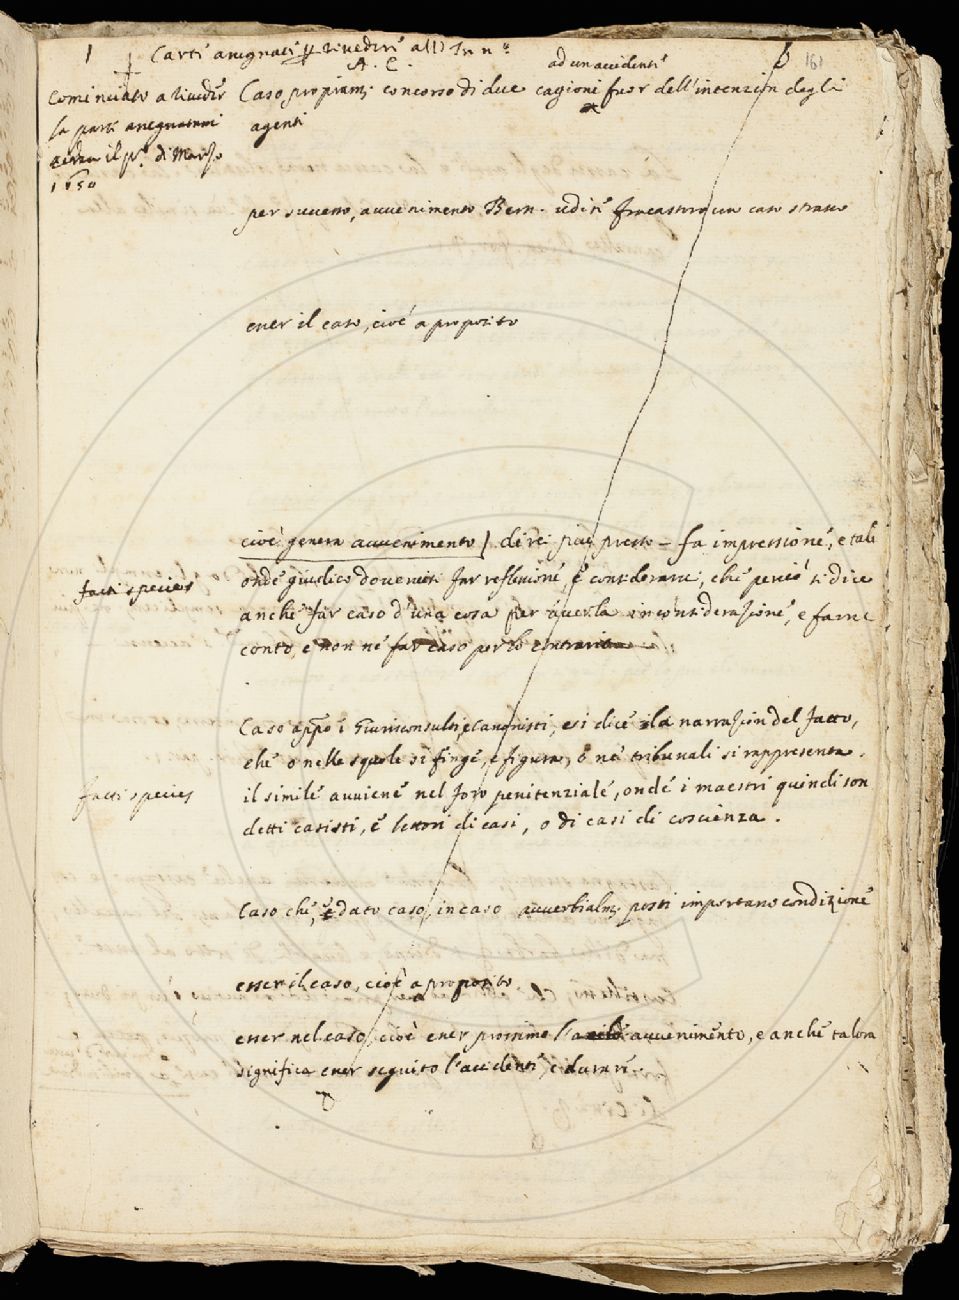 1 Carte asegnate p rivedere all'In n.º
A. C.
161
Cominciato a riveder
la parte asegnatami
il pº. di Marzo
1650
ad un accidente
Caso propriam. concorso di due cagioni fuor dell'intenzion degli
agenti
per successo, avvenimento Bern. udite Fracastoro un caso strano
esser il caso, cioè a proposito
cioè genera avvenimento / direi più presto - fa impressione, e tale
onde giudico doversene far reflessione, e considerare, che perciò si dice
anche far caso d'una cosa per averla in considerazione, e farne
conto, e non ne far caso per lo contrario
facti species
Caso appo i Giurisconsulti, e Canonisti, esi dice la narrazion del fatto,
che o nelle scuole si finge, e figura, o ne' tribunali si rappresenta.
il simile avviene nel foro penitenziale, onde i maestri quindi son
detti casisti, e lettori di casi, o di casi di coscienza.
facti species
Caso che, e dato caso, in caso avverbialm. posti importano condizione
esser il caso, cioè a proposito
esser nel caso, cioè esser prossimo l'avvenimento, e anche talora
significa esser seguito l'accidente, e durare.